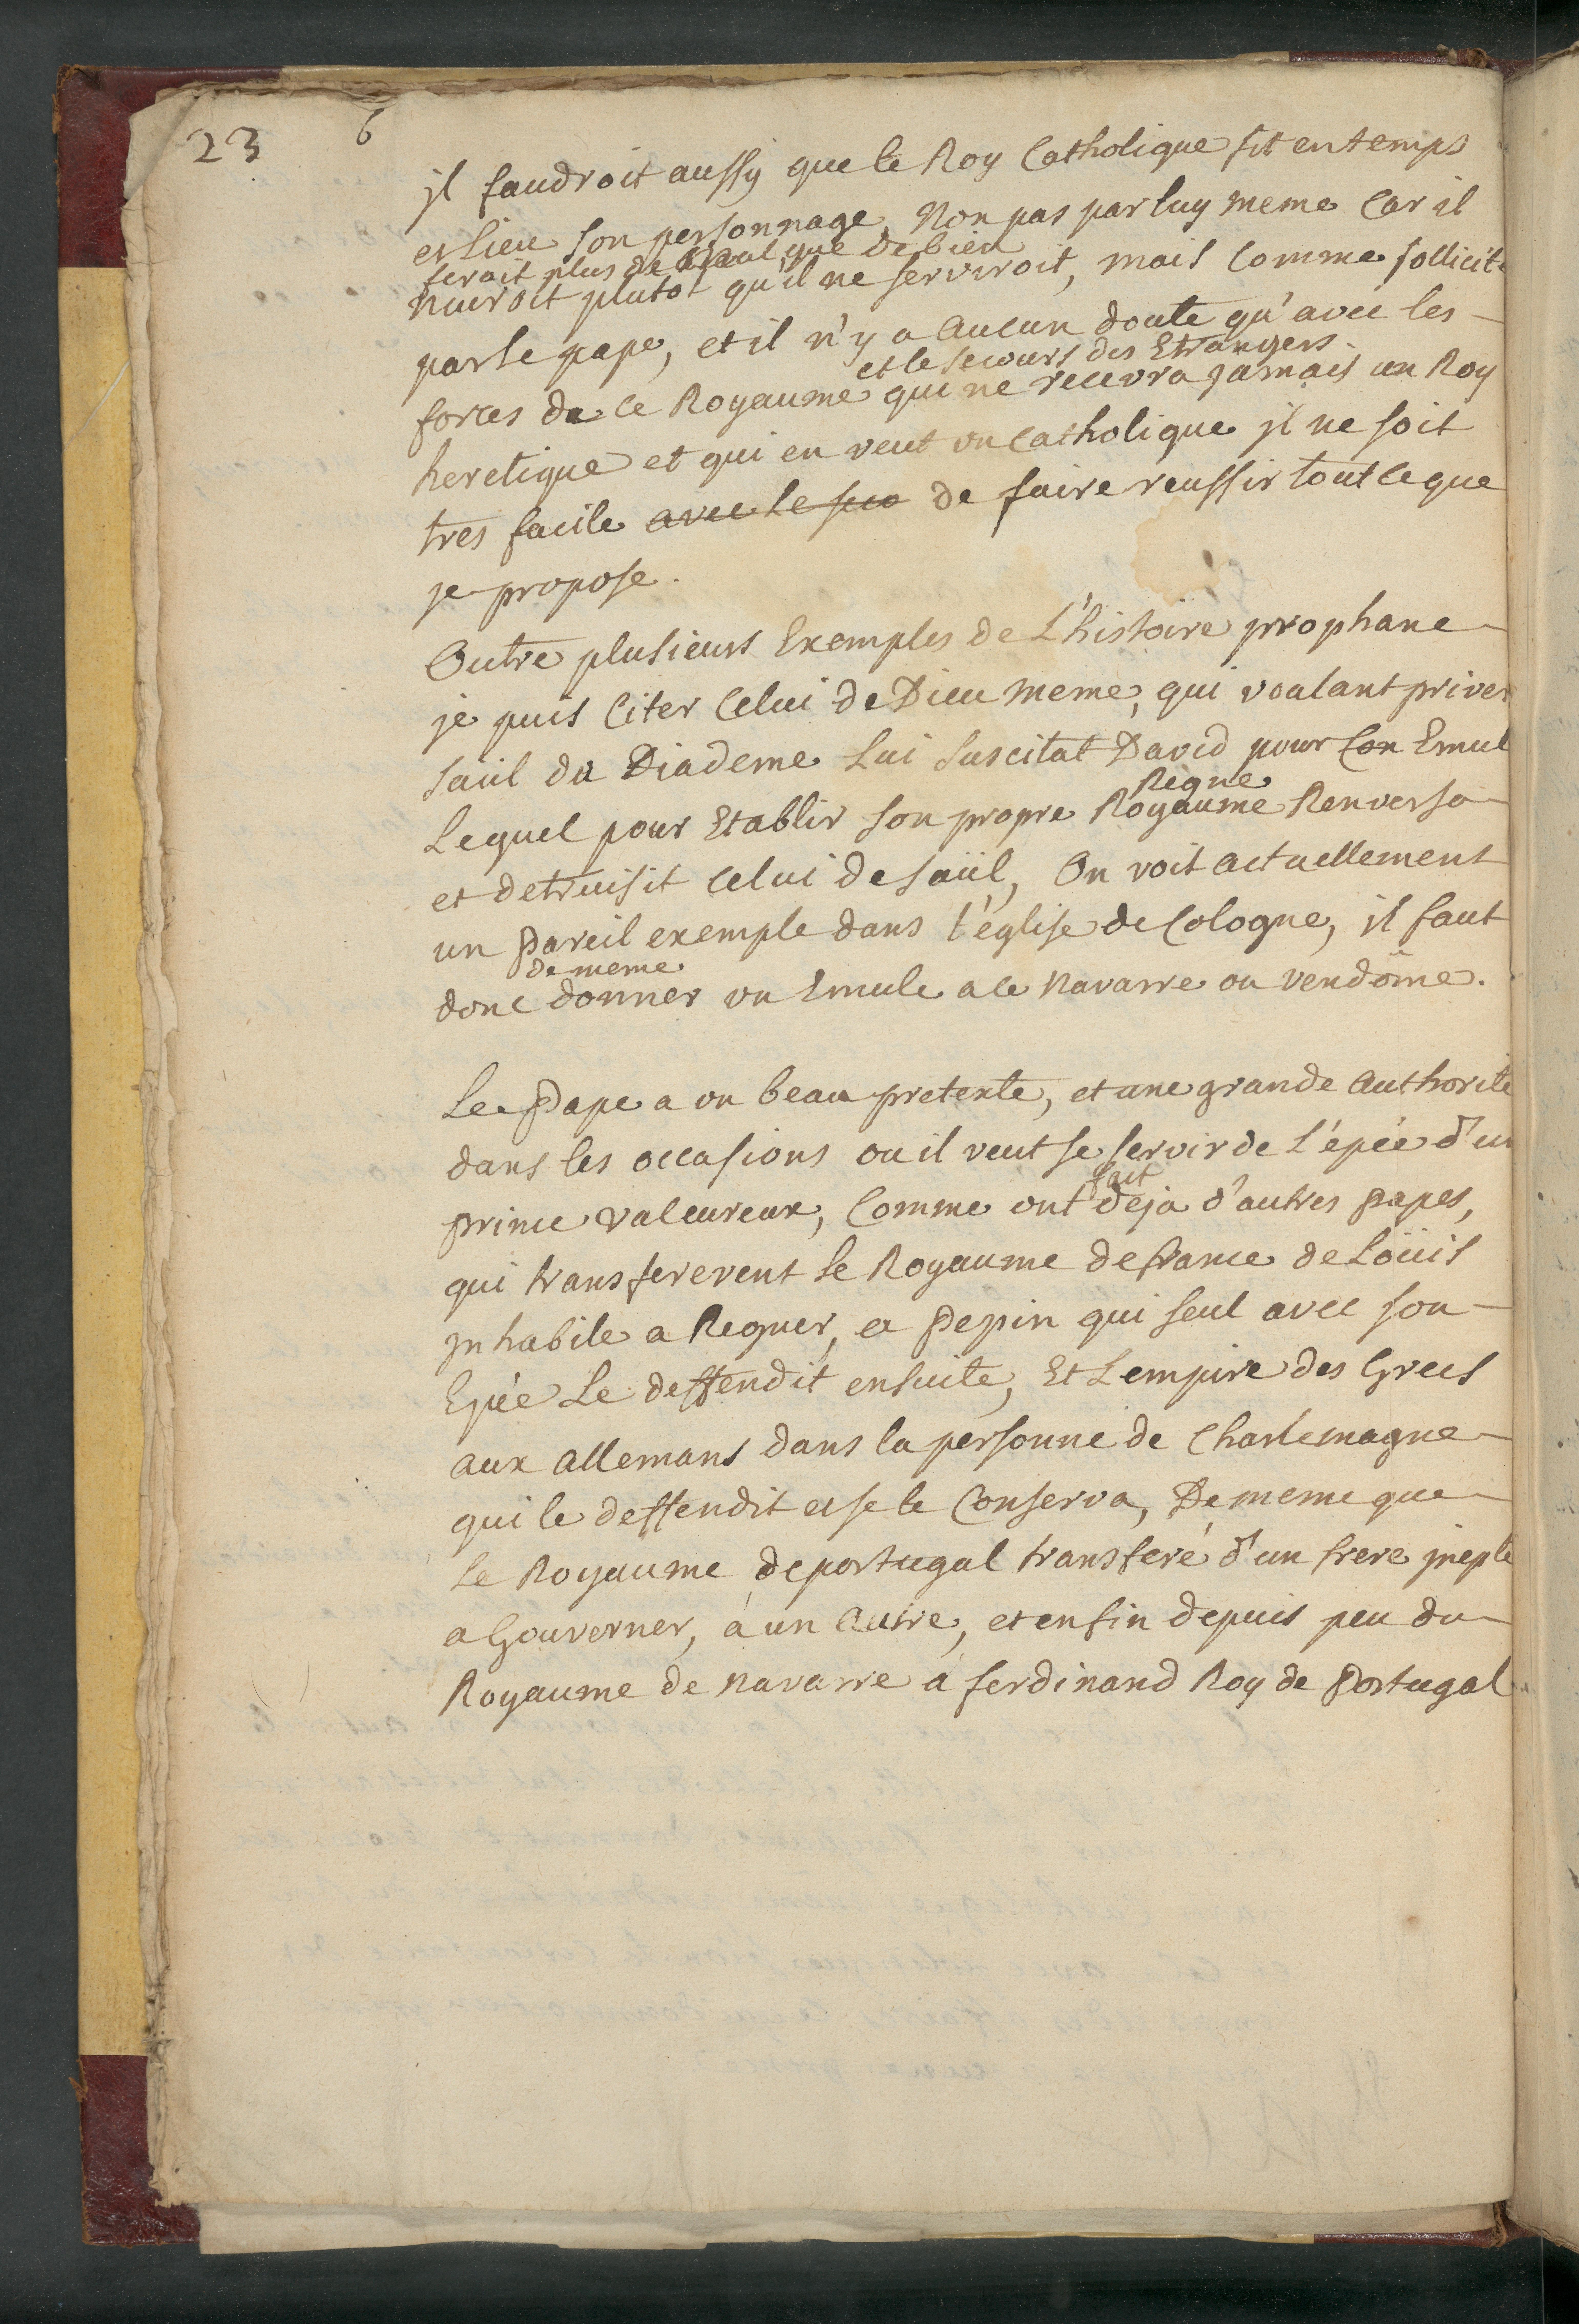 23 6
jl faudroit aussy que le Roy Catholique fit en temps
et lieu son personnage, Non pas par luy meme Car il
feroit plus de mal que de bien
nuiroit plutot qu'il ne serviroit, mais Comme sollicité
par le pape, et il n'y a Aucun doute qu'avec les
et le secours des Etrangers
forces de ce Royaume qui ne recevra jamais un Roy
heretique et qui en veut un Catholique jl ne soit
tres facile avec le seco de faire reussir tout ce que
je propose.
Outre plusieurs Exemples de L'histoire prophane
je puis Citer Celui de Dieu meme, qui voulant priver
Saül du Diademe Lui Suscitat David pour Son Emul
Regne
Lequel pour Etablir son propre Royaume Renversa
et detruisit Celui de Saül, On voit actuellement
un pareil exemple dans l'église de Cologne, il faut
de meme
donc donner un Emule a ce Navarre ou vendôme.
Le Pape a un beau pretexte, et une grande Authorité
dans les occasions ou il veut se servir de L'épée d'un
fait
prince valeureux, Comme ont deja d'autres papes,
qui transfererent le Royaume de france de Loüis
jnhabile a Regner, a Pepin qui seul avec son
Epée Le deffendit ensuite, Et L'empire des Grecs
aux allemans dans la personne de Charlemagne
qui le deffendit et se le Conserva, De meme que
le Royaume de portugal transferé d'un frere jnepte
a Gouverner, à un Autre, et enfin depuis peu du
Royaume de Navarre à ferdinand Roy de Portugal